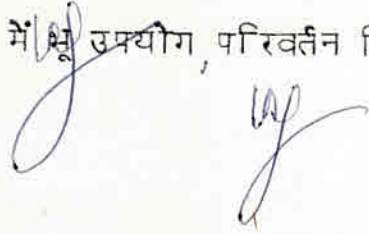 में भू उपयोग, परिवर्तन